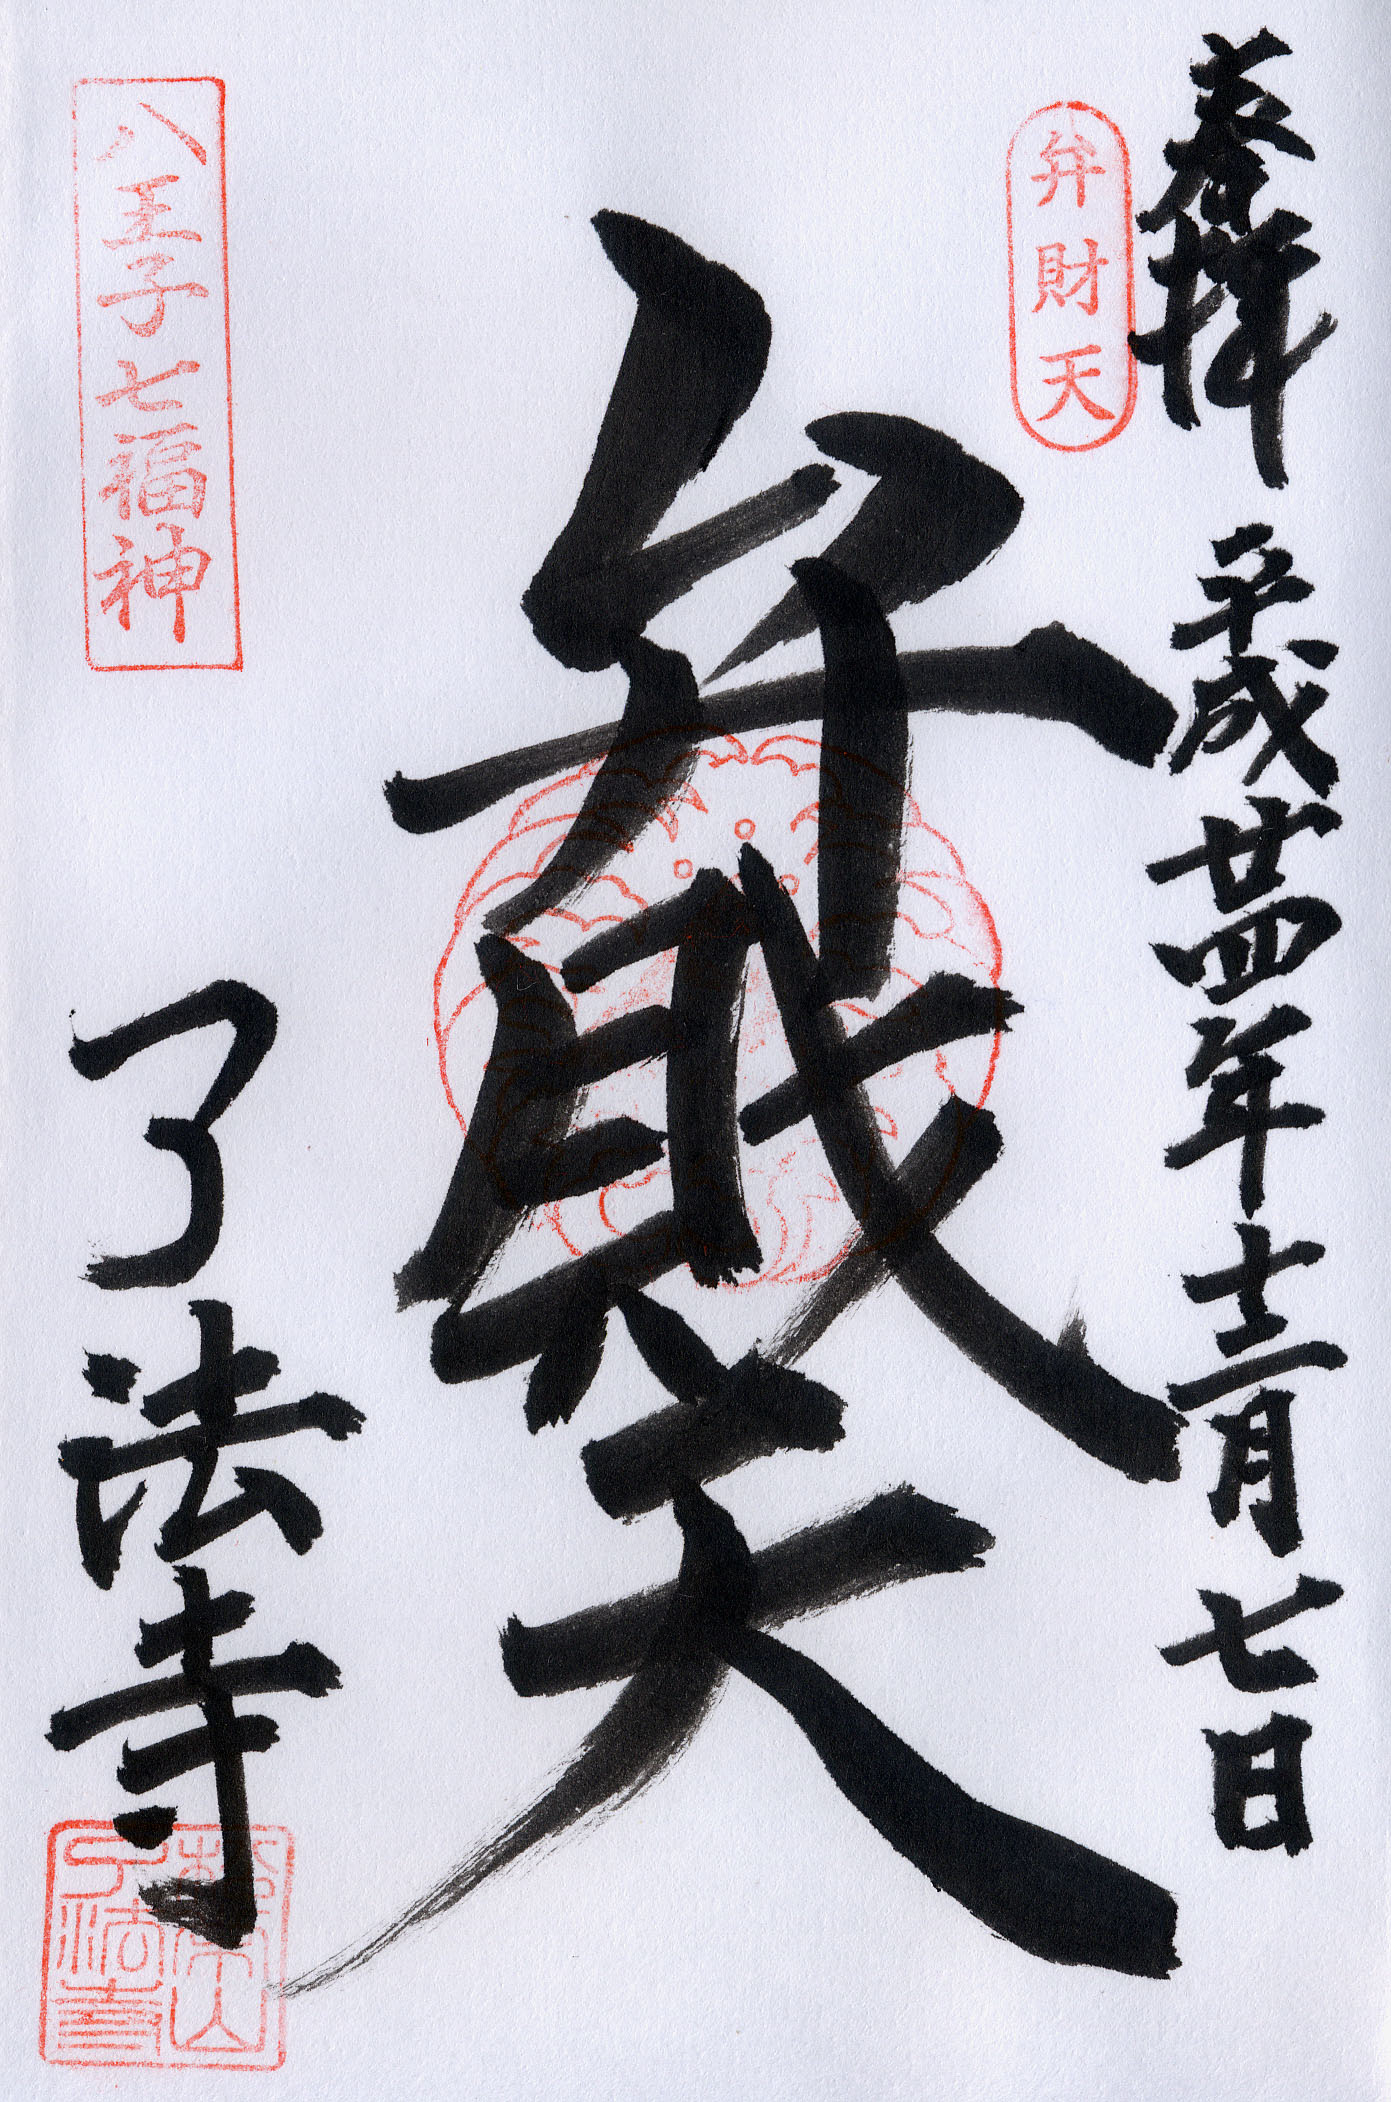 奉拝 平成廿四年十二月七日
弁財天
弁財天
八王子七福神
了法寺